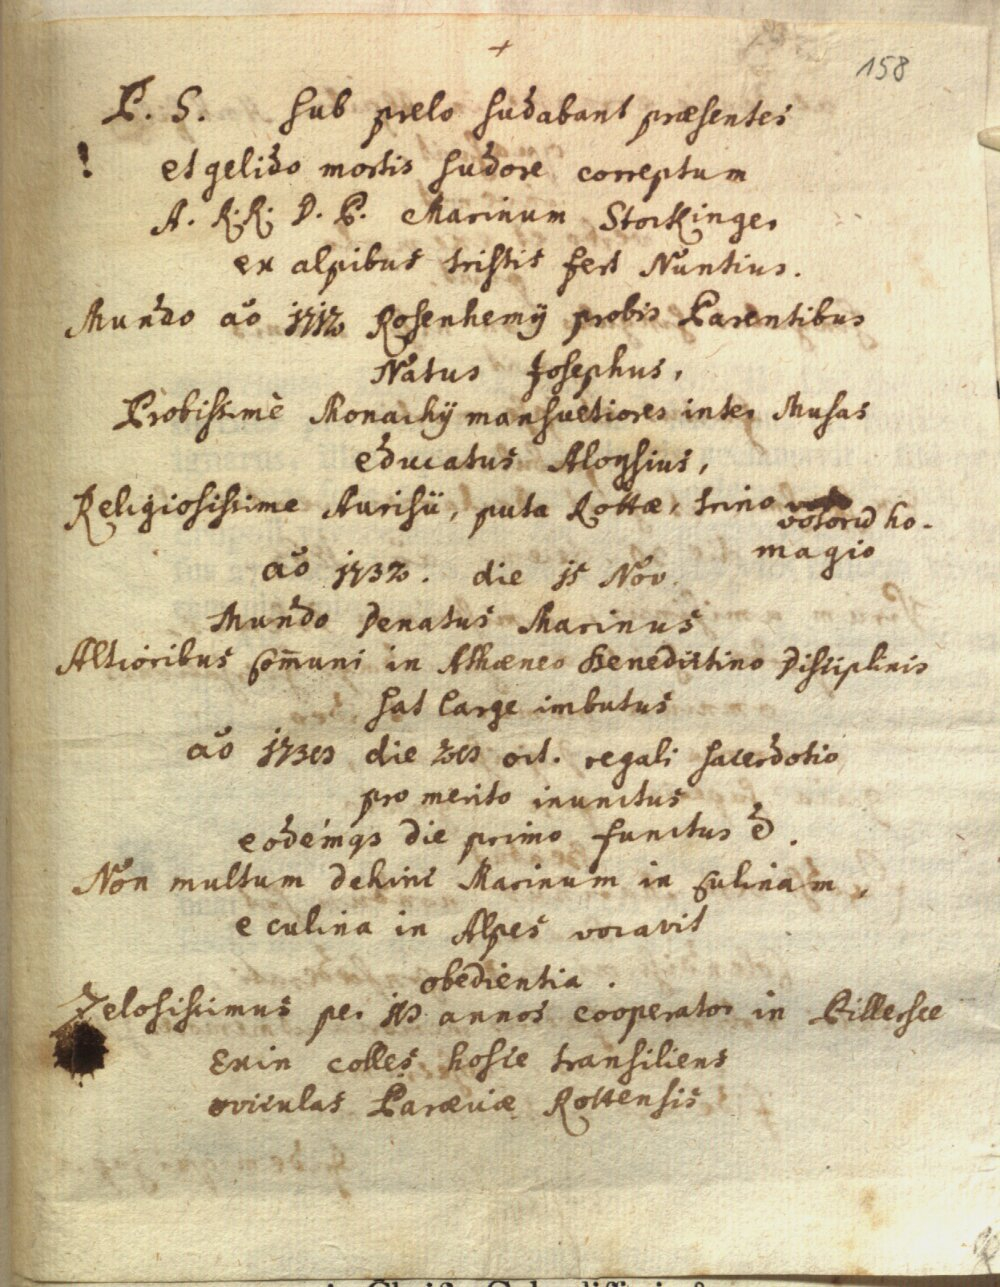 +
158
P. S. sub prelo sudabant præsentes
! et gelido mortis sudore correptum
A. R. R. D. P. Marinum Stockinger
ex alpibus tristis fert Nuntius.
Mundo aō 1712 Rosenhemÿ probis Parentibus
Natus Josephus,
Probissimè Monachÿ mansuetiores inter Musas
educatus Aloysius,
Religiosissime Aurisii, puta Rottæ, trino
votorū ho-
magio
aō 1732. die 15 Nov.
Mundo Denatus Marinus
Altioribus Com̄uni in Athæneo Benedictino Disciplinis
sat large imbutus
aō die oct. regali sacerdotio
pro merito inunctus
eodémqs die primo functus
Non multum dehinc Marinum in Culinam,
e culina in Alpes vocavit
obedientia.
Zelosissimus per annos cooperator in Pillersee
Exin colles hosce transiliens
oviculas Paræciæ Rottensis